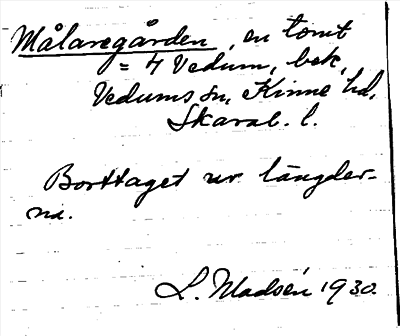 Målaregården, en tomt
= 4 Vedum, bek,
Vedums sn, Kinne hd,
Skarab. l.
Borttaget ur längder-
na.
L. Madsén 1930.